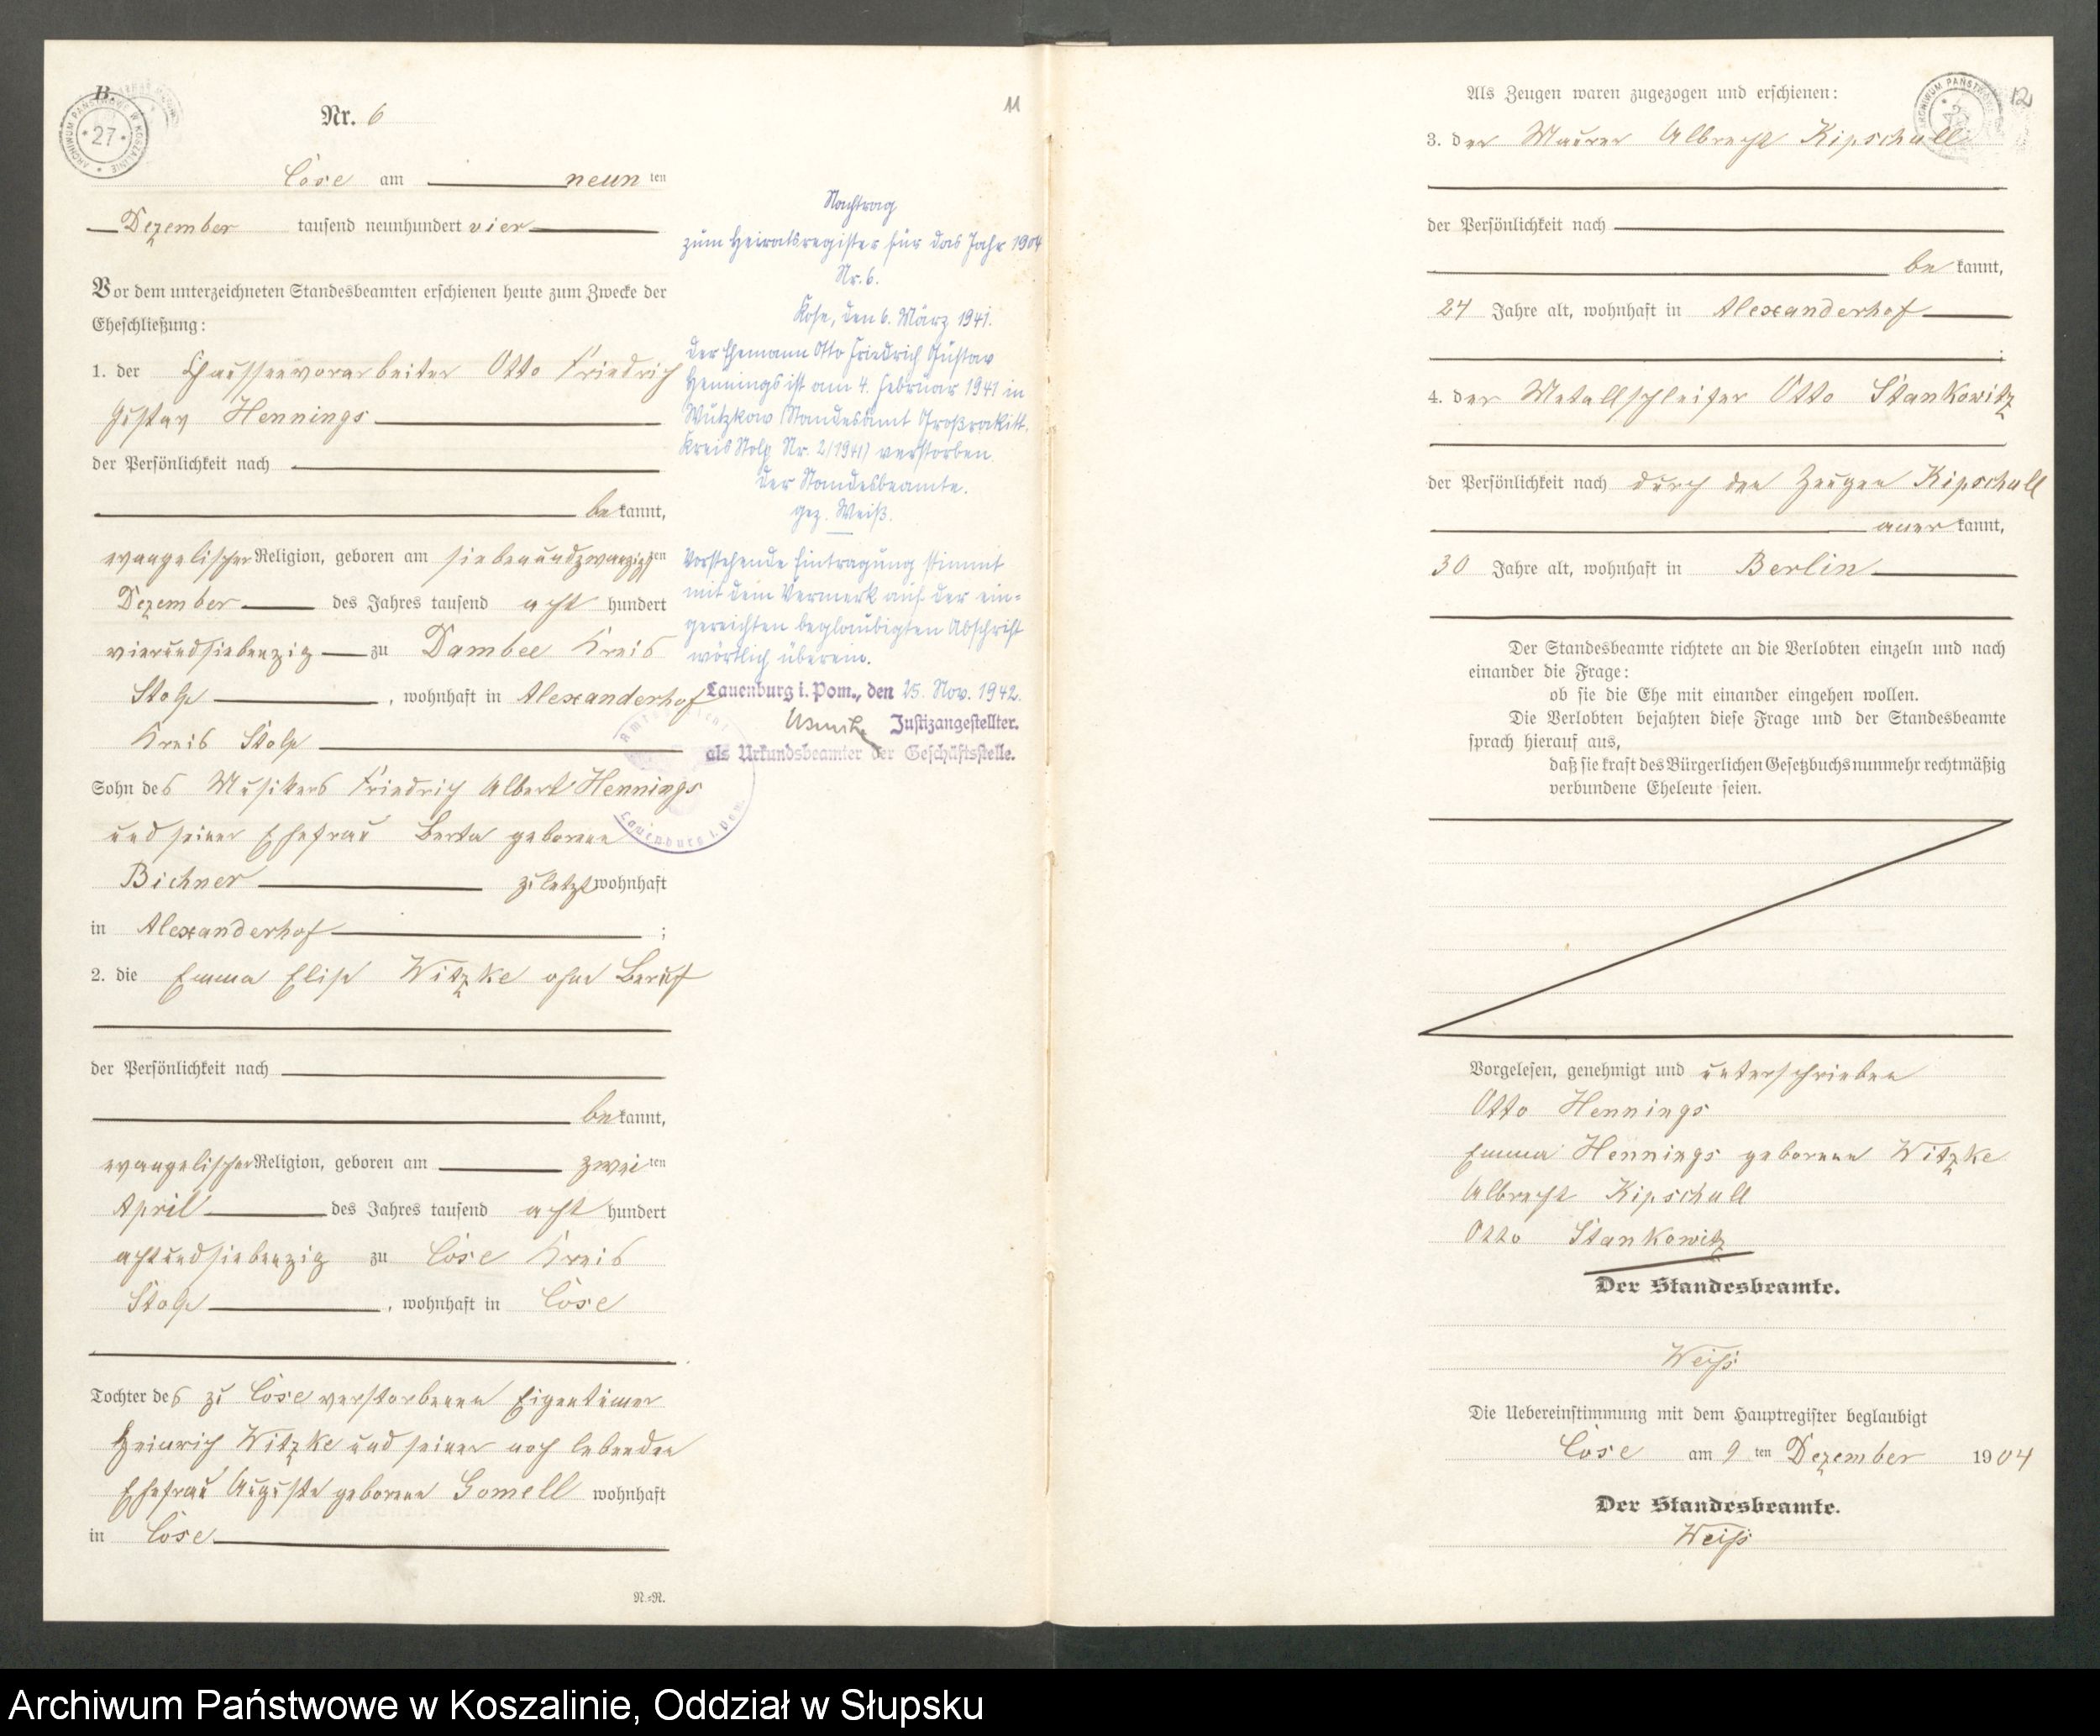 B.
ARCHIWUM PAŃSTWOWE W KOSZALINIE
27
Nr. 6
11
Cose am neun ten
Dezember tausend neunhundert vier
Vor dem unterzeichneten Standesbeamten erschienen heute zum Zwecke der
Eheschließung:
1. der Chausseevorarbeiter Otto Friedrich
Gustav Hennings
der Persönlichkeit nach
be kannt,
evangelischer Religion, geboren am siebenundzwanzigsten
Dezember des Jahres tausend acht hundert
vierundsiebenzig zu Dambee Kreis
Stolp, wohnhaft in Alexanderhof
Kreis Stolp
Sohn des Musikers Friedrich Albert Hennings
und seiner Ehefrau Berta geborene
Bichner zuletzt wohnhaft
in Alexanderhof ;
2. die Emma Elise Witzke ohne Beruf
der Persönlichkeit nach
be kannt,
evangelischer Religion, geboren am zwei ten
April des Jahres tausend acht hundert
achtundsiebenzig zu Cose Kreis
Stolp, wohnhaft in Cose
Tochter des zu Cose verstorbenen Eigentümer
Heinrich Witzke und seiner noch lebenden
Ehefrau Auguste geborene Gomell wohnhaft
in Cose
N.=N.
Nachtrag
zum Heiratsregister für das Jahr 1904
Nr. 6.
Kose, den 6. März 1941.
Der Ehemann Otto Friedrich Gustav
Hennings ist am 4. Februar 1941 in
Wutzkow (Standesamt Großrakitt,
Kreis Stolp Nr. 2/1941) verstorben.
Der Standesbeamte.
gez. Weiß.
Vorstehende Eintragung stimmt
mit dem Vermerk auf der ein=
gereichten beglaubigten Abschrift
wörtlich überein.
Lauenburg i. Pom., den 25. Nov. 1942.
Justizangestellter.
als Urkundsbeamter der Geschäftsstelle.
Amtsgericht
Lauenburg i. Pom.
12
ARCHIWUM PAŃSTWOWE
Als Zeugen waren zugezogen und erschienen:
3. der Maurer Albrecht Kipschull
der Persönlichkeit nach
be kannt,
27 Jahre alt, wohnhaft in Alexanderhof
;
4. der Metallschleifer Otto Stankowitz
der Persönlichkeit nach durch den Zeugen Kipschull
aner kannt,
30 Jahre alt, wohnhaft in Berlin
Der Standesbeamte richtete an die Verlobten einzeln und nach
einander die Frage:
ob sie die Ehe mit einander eingehen wollen.
Die Verlobten bejahten diese Frage und der Standesbeamte
sprach hierauf aus,
daß sie kraft des Bürgerlichen Gesetzbuchs nunmehr rechtmäßig
verbundene Eheleute seien.
Vorgelesen, genehmigt und unterschrieben
Otto Hennings
Emma Hennings geborene Witzke
Albrecht Kipschull
Otto Stankowitz
Der Standesbeamte.
Weiß
Die Uebereinstimmung mit dem Hauptregister beglaubigt
Cose am 9 ten Dezember 1904
Der Standesbeamte.
Weiß
Archiwum Państwowe w Koszalinie, Oddział w Słupsku